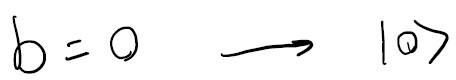 b = 0 → |0⟩